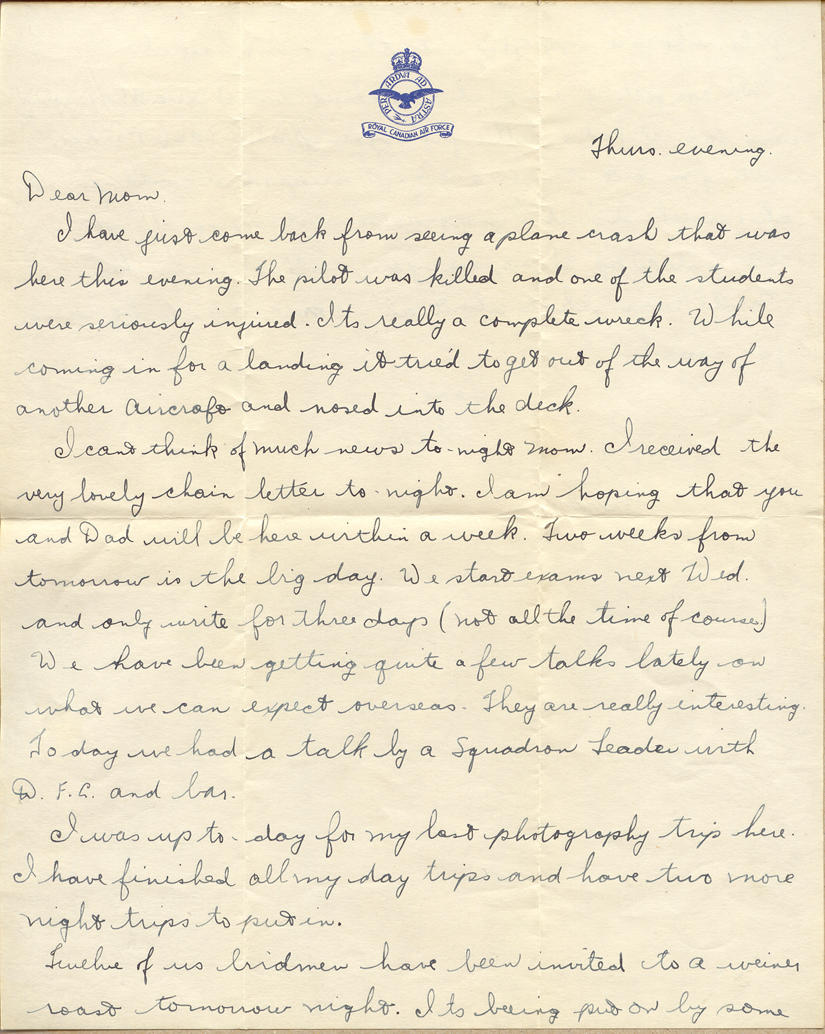 PER ARDVA AD ASTRA
ROYAL CANADIAN AIR FORCE
Thurs. evening.
Dear Mom.
I have just come back from seeing a plane crash that was
here this evening. The pilot was killed and one of the students
were seriously injured. Its really a complete wreck. While
coming in for a landing it tried to get out of the way of
another Aircraft and nosed into the deck.
I cant think of much news to-night Mom. I received the
very lovely chain letter to-night. I am hoping that you
and Dad will be here within a week. Two weeks from
tomorrow is the big day. We start exams next Wed.
and only write for three days (not all the time of course)
We have been getting quite a few talks lately on
what we can expect overseas. They are really interesting.
To day we had a talk by a Squadron Leader with
D. F.C. and bar.
I was up to-day for my last photography trip here.
I have finished all my day trips and have two more
night trips to put in.
Twelve of us bridmen have been invited to a weiner
roast tomorrow night. Its being put on by some